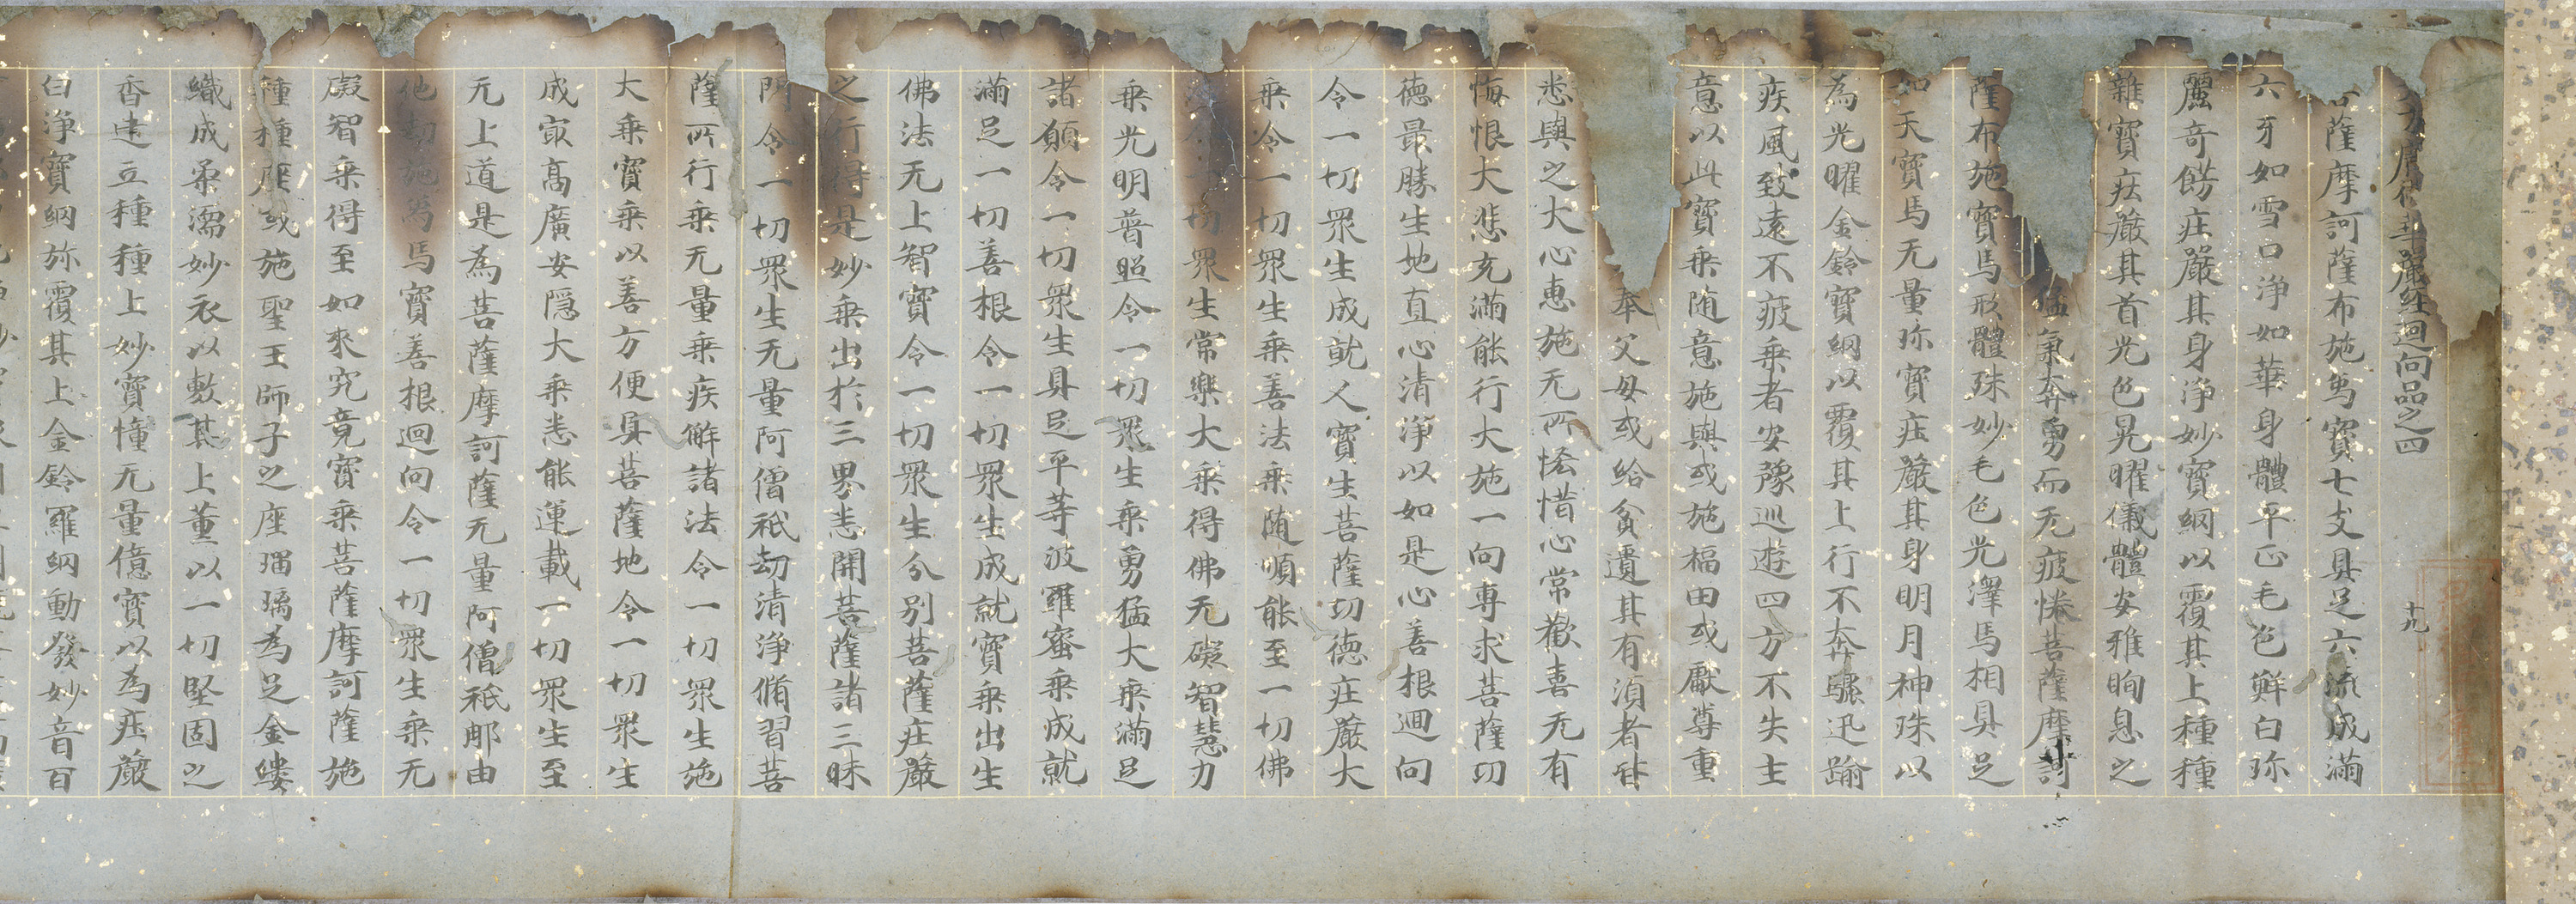 大方廣佛華嚴經迴向品之四 十九
菩薩摩訶薩布施馬寶七支具足六流成滿
六牙如雪口淨如華身體平正毛色鮮白珎
麗奇餝庄嚴其身淨妙寶網以覆其上種種
雜寶庄嚴其首光色晃曜儀體安雅晌息之
猛氣奔勇而无疲惓菩薩摩訶
薩布施寶馬形體殊妙毛色光澤馬相具足
如天寶馬无量珎寶庄嚴其身明月神珠以
為光曜金鈴寶網以覆其上行不奔驟迅踰
疾風致遠不疲乗者安豫巡遊四方不失主
意以此寶乗随意施與或施福田或獻尊重
奉父母或給貧遺其有湏者皆
悉與之大心惠施无所恡惜心常歡喜无有
悔恨大悲充滿能行大施一向專求菩薩功
德最勝生地直心清淨以如是心善根迴向
令一切眾生成就人寶生菩薩功德庄嚴大
乗令一切眾生乗善法乗随順能至一切佛
令一切眾生常樂大乗得佛无礙智慧力
乗光明普照令一切眾生乗勇猛大乗滿足
諸願令一切眾生具足平等波羅蜜乗成就
滿足一切善根令一切眾生成就寶乗出生
佛法无上智寶令一切眾生分別菩薩庄嚴
之行得是妙乗出於三界悉開菩薩諸三昧
門令一切眾生无量阿僧祇劫清淨脩習菩
薩所行乗无量乗疾解諸法令一切眾生施
大乗寶乗以善方便具菩薩地令一切眾生
成㝡高廣安隱大乗悉能運載一切眾生至
无上道是為菩薩摩訶薩无量阿僧祇那由
他劫施馬馬寶善根迴向令一切眾生乗无
礙智乗得至如來究竟寶乗菩薩摩訶薩施
種種座或施聖王師子之座瑠璃為足金縷
織成柔濡妙衣以敷其上薰以一切堅固之
香建立種種上妙寶幢无量億寶以為庄嚴
白淨寶網弥覆其上金鈴羅網動發妙音百